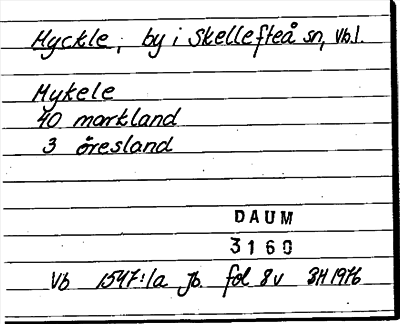 Myckle, by i Skellefteå sn, Vb.l.
Mykele
40 markland
3 öresland
DAUM
3160
Vb 1547:1a Jb. fol 8v SH 1976